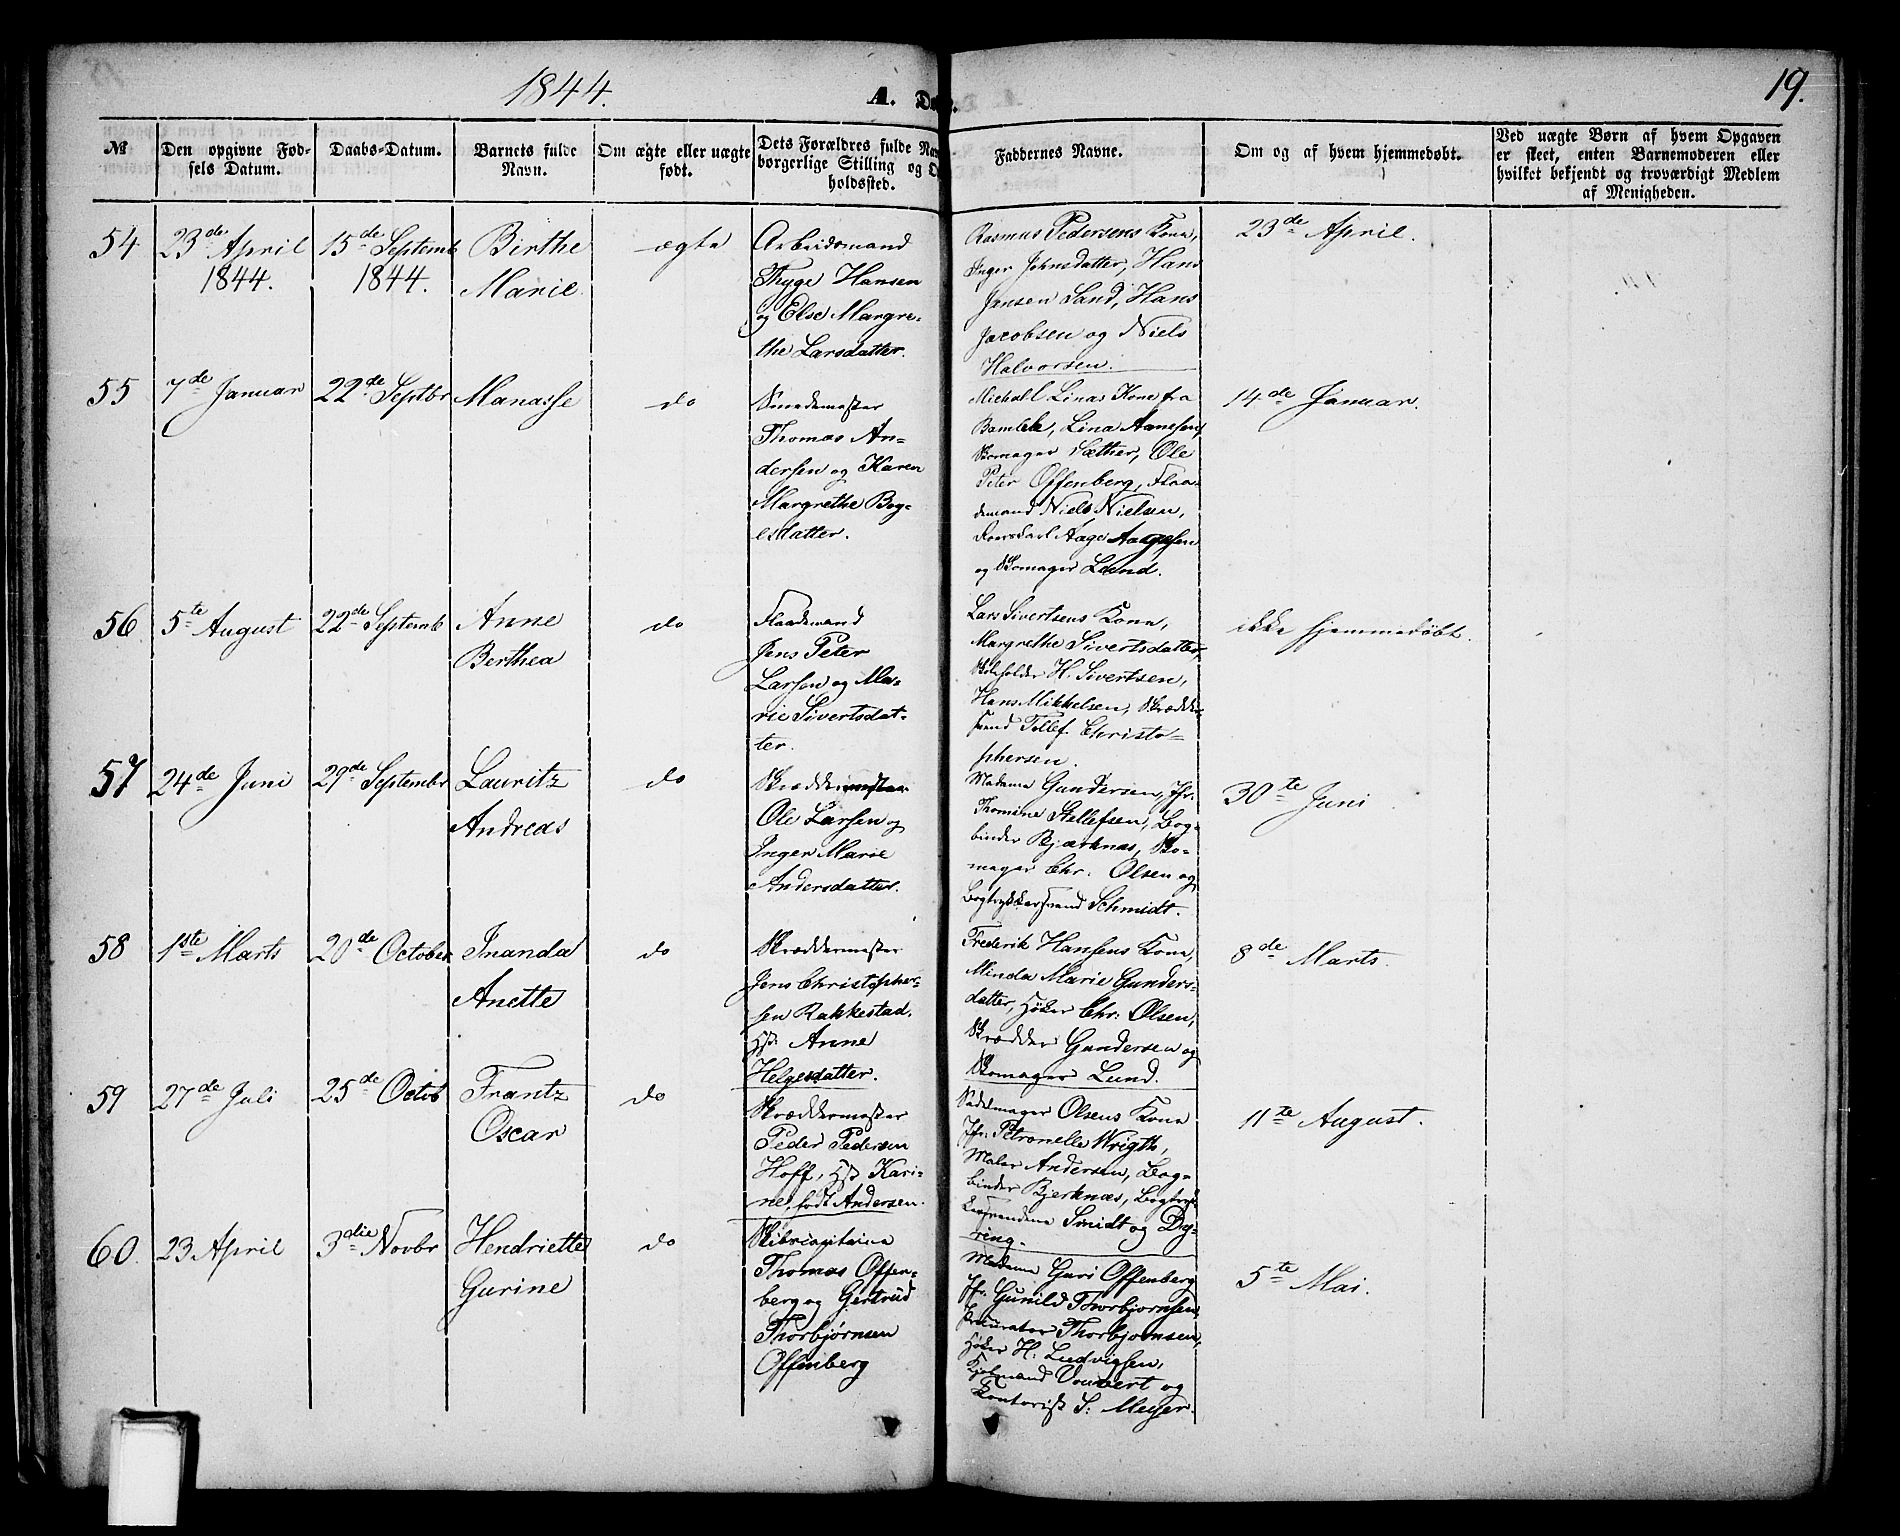 1844.
A. Døbte.
19.
№
Den opgivne Fød-
sels Datum.
Daabs-Datum.
Barnets fulde
Navn.
Om ægte eller uægte
født.
Dets Forældres fulde Nav
borgerlige Stilling og O
holdssted.
Faddernes Navne.
Om og af hvem hjemmedøbt.
Ved uægte Børn af hvem Opgaven
er skeet, enten Barnemoderen eller
hvilket bekjendt og troværdigt Medlem
af Menigheden.
54
23de April
1844.
15de Septemb
1844.
Birthe
Marie
ægte
Arbeidsmand
Thyge Hansen
og Else Margre-
the Larsdatter.
Rasmus Pedersens Kone,
Inger Johnsdatter, Hans
Jensen Sand, Hans
Jacobsen og Niels
Halvorsen.
23de April.
55
7de Januar
22de Septbr
Manasse
do
Smedemester
Thomas An-
dersen og Karen
Margrethe Bog-
esdatter.
Michael Linas Kone fra
Bamble, Lina Aanesen,
Skomager Sæther, Ole
Peter Offenberg, Flaa-
demand Niels Nielsen,
Aage Aagesen
og Skomager Lund.
14de Januar.
56
5te August
22de Septemb
Anne
Berthea
do
Flaademand
Jens Peter
Larsen og Ma-
rie Sivertsdat-
ter.
Lars Sivertsens Kone,
Margrethe Sivertsdatter,
Skoleholder H. Sivertsen,
Hans Mikkelsen, Skrædder
svend Tellef Christo-
phersen.
ikke hjemmedøbt.
57
24de Juni
29de Septembr
Lauritz
Andreas
do
Skræddermester
Ole Larsen og
Inger Marie
Andersdatter.
Madame Gundersen, Jfr.
Thomine Stellefsen, Bog-
binder Bjærknæs, Sko-
mager Chr. Olsen og
Bogtrykkersvend Schmidt.
30te Juni
58
1ste Marts
20de October
Inanda
Anette
do
Skræddermester
Jens Christopher-
sen Rakkestad.
Hst: Anne
Helgesdatter.
Frederik Hansens Kone,
Minda Marie Gunders-
datter, Høker Chr: Olsen,
Skrædder Gundersen og
Skomager Lund.
8de Marts.
59
27de Juli
25de Octob
Frantz
Oscar
do
Skræddermester
Peder Pedersen
Hoff, Hst. Kari-
ne, født Andersen.
Sadelmager Olsens Kone
Jfr: Petronelle Wrigth,
Maler Andersen, Bog-
binder Bjerknæs, Bogtryk
kersvendene Smidt og Dy-
ring.
11te August.
60.
23 April
3die Novbr
Hendriette
Gurine
do
Skibscapitaine
Thomas Offen-
berg og Gertrud
Thorbjørnsen
Offenberg
Madame Guri Offenberg
Jfr. Gunild Thorbjørnsen,
Procurator Thorbjørnsen,
Høker H: Ludvigsen,
Kjøbmand Vouvert og
Kontorist S: Meyer.
5te Mai.